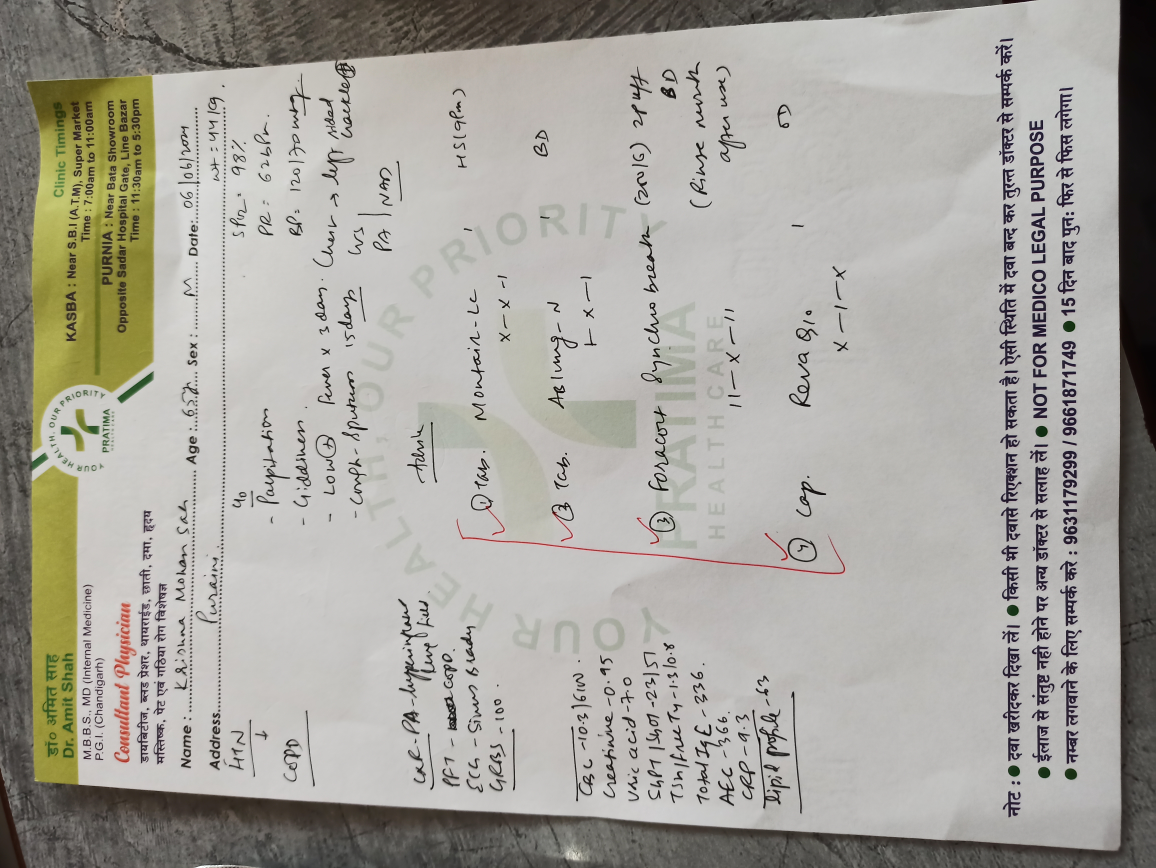 डा॰ अमित साह
Dr. Amit Shah
M.B.B.S., MD (Internal Medicine)
P.G.I. (Chandigarh)
Consultant Physician
डायबिटीज, ब्लड प्रेशर, थायराईड, छाती, दमा, हृदय
मस्तिष्क, पेट एवं गठिया रोग विशेषज्ञ
YOUR HEALTH, OUR PRIORITY
PRATIMA
Clinic Timings
KASBA : Near S.B.I (A.T.M), Super Market
Time : 7:00am to 11:00am
PURNIA : Near Bata Showroom
Opposite Sadar Hospital Gate, Line Bazar
Time : 11:30am to 5:30pm
Name : Krishna Mohan Sah Age : 65 Sex : M Date: 06/06/2024
Address Puraini wt = 44 kg
HTN
↓
COPD
c/o
- Palpitation
- Giddiness
- Low Fever x 3 days
- Cough - Sputum 15 days
SPO2 = 98%
PR = 62 bpm
BP = 120/70 mmHg
Chest → left sided crackle
CVS
PA | NAD
Advice
CXR-PA-
lung field
PFT - COPD
ECG - Sinus Brady
GRBS - 100
CBC - 10.3 /
Creatinine - 0.95
Uric acid - 7.0
SGPT/SGOT - 23/51
TSH/Free T4 - 1.3/0.8
Total IgE - 336
AEC - 366
CRP - 9.3
Lipid profile - 63
① Tab. Montair-LC HS (9pm)
x - x - 1
② Tab. Ablung-N BD
1 - x - 1
③ Foracort Synchrobreathe (200/6) 2puff BD
11 - x - 11 (Rinse mouth after use)
④ Cap. Reva Q10 OD
x - 1 - x
YOUR HEALTH, OUR PRIORITY
PRATIMA
HEALTH CARE
नोट : ● दवा खरीदकर दिखा लें। ● किसी भी दवासे रिएक्शन हो सकता है। ऐसी स्थिति में दवा बन्द कर तुरन्त डॉक्टर से सम्पर्क करें।
● ईलाज से संतुष्ट नही होने पर अन्य डॉक्टर से सलाह लें। ● NOT FOR MEDICO LEGAL PURPOSE
● नम्बर लगवाने के लिए सम्पर्क करे : 9631179299 / 9661871749 ● 15 दिन बाद पुनः फिर से फिस लगेगा।